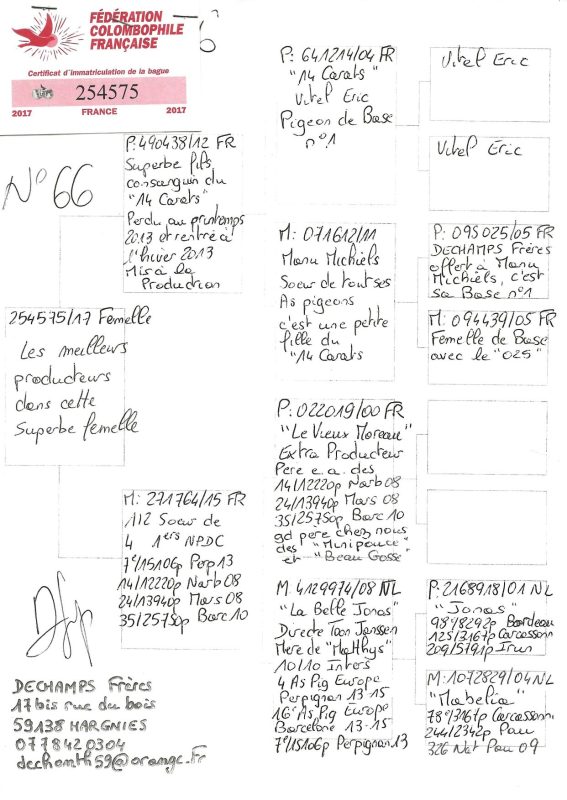 FÉDÉRATION
COLOMBOPHILE
FRANÇAISE
Certificat d'immatriculation de la bague
254575
2017 FRANCE 2017
N° 66
254575/17 Femelle
Les meilleurs
producteurs
dans cette
Superbe femelle
P: 490438/12 FR
Superbe fils
consanguin du
"14 Carats"
Perdu au printemps
2013 et rentré à
l'hiver 2013
Mis à la
Production
M: 271764/15 FR
1/2 Soeur de
4 1ers NPDC
7e/15106p Perp 13
14/12220p Narb 08
24/13940p Mars 08
35/25750p Barc 10
P: 641214/04 FR
"14 Carats"
Vitel Eric
Pigeon de Base
n°1
M: 071612/11
Manu Michiels
Soeur de tout ses
As pigeons
c'est une petite
fille du
"14 Carats
P: 022019/00 FR
"Le Vieux Moreau"
Extra Producteur
Pere e.a. des
14/12220p Narb 08
24/13940p Mars 08
35/25750p Barc 10
gd pere chez nous
des "Minipouce"
et "Beau Gosse"
M: 4129974/08 NL
"La Belle Jonas"
Directe Toon Janssen
Mere de "Matthys"
10/10 Inters
4 As Pig Europe
Perpignan 13-15
16e As Pig Europe
Barcelone 13-15
7e/15106p Perpignan 13
Vitel Eric
Vitel Eric
P: 095025/05 FR
DECHAMPS Frères
offert à Manu
Michiels, c'est
sa Base n°1
M: 094439/05 FR
Femelle de Base
avec le "025"
P: 2168918/01 NL
"Jonas"
98e/8292p Bordeau
125/3167p Carcassonn
209/5791p Irun
M: 1072829/04 NL
"Mabelia"
78e/3167p Carcassonn
244/2342p Pau
326 Nat Pau 09
DECHAMPS Frères
17 bis rue du bois
59138 HARGNIES
0778420304
dechamth59@orange.fr